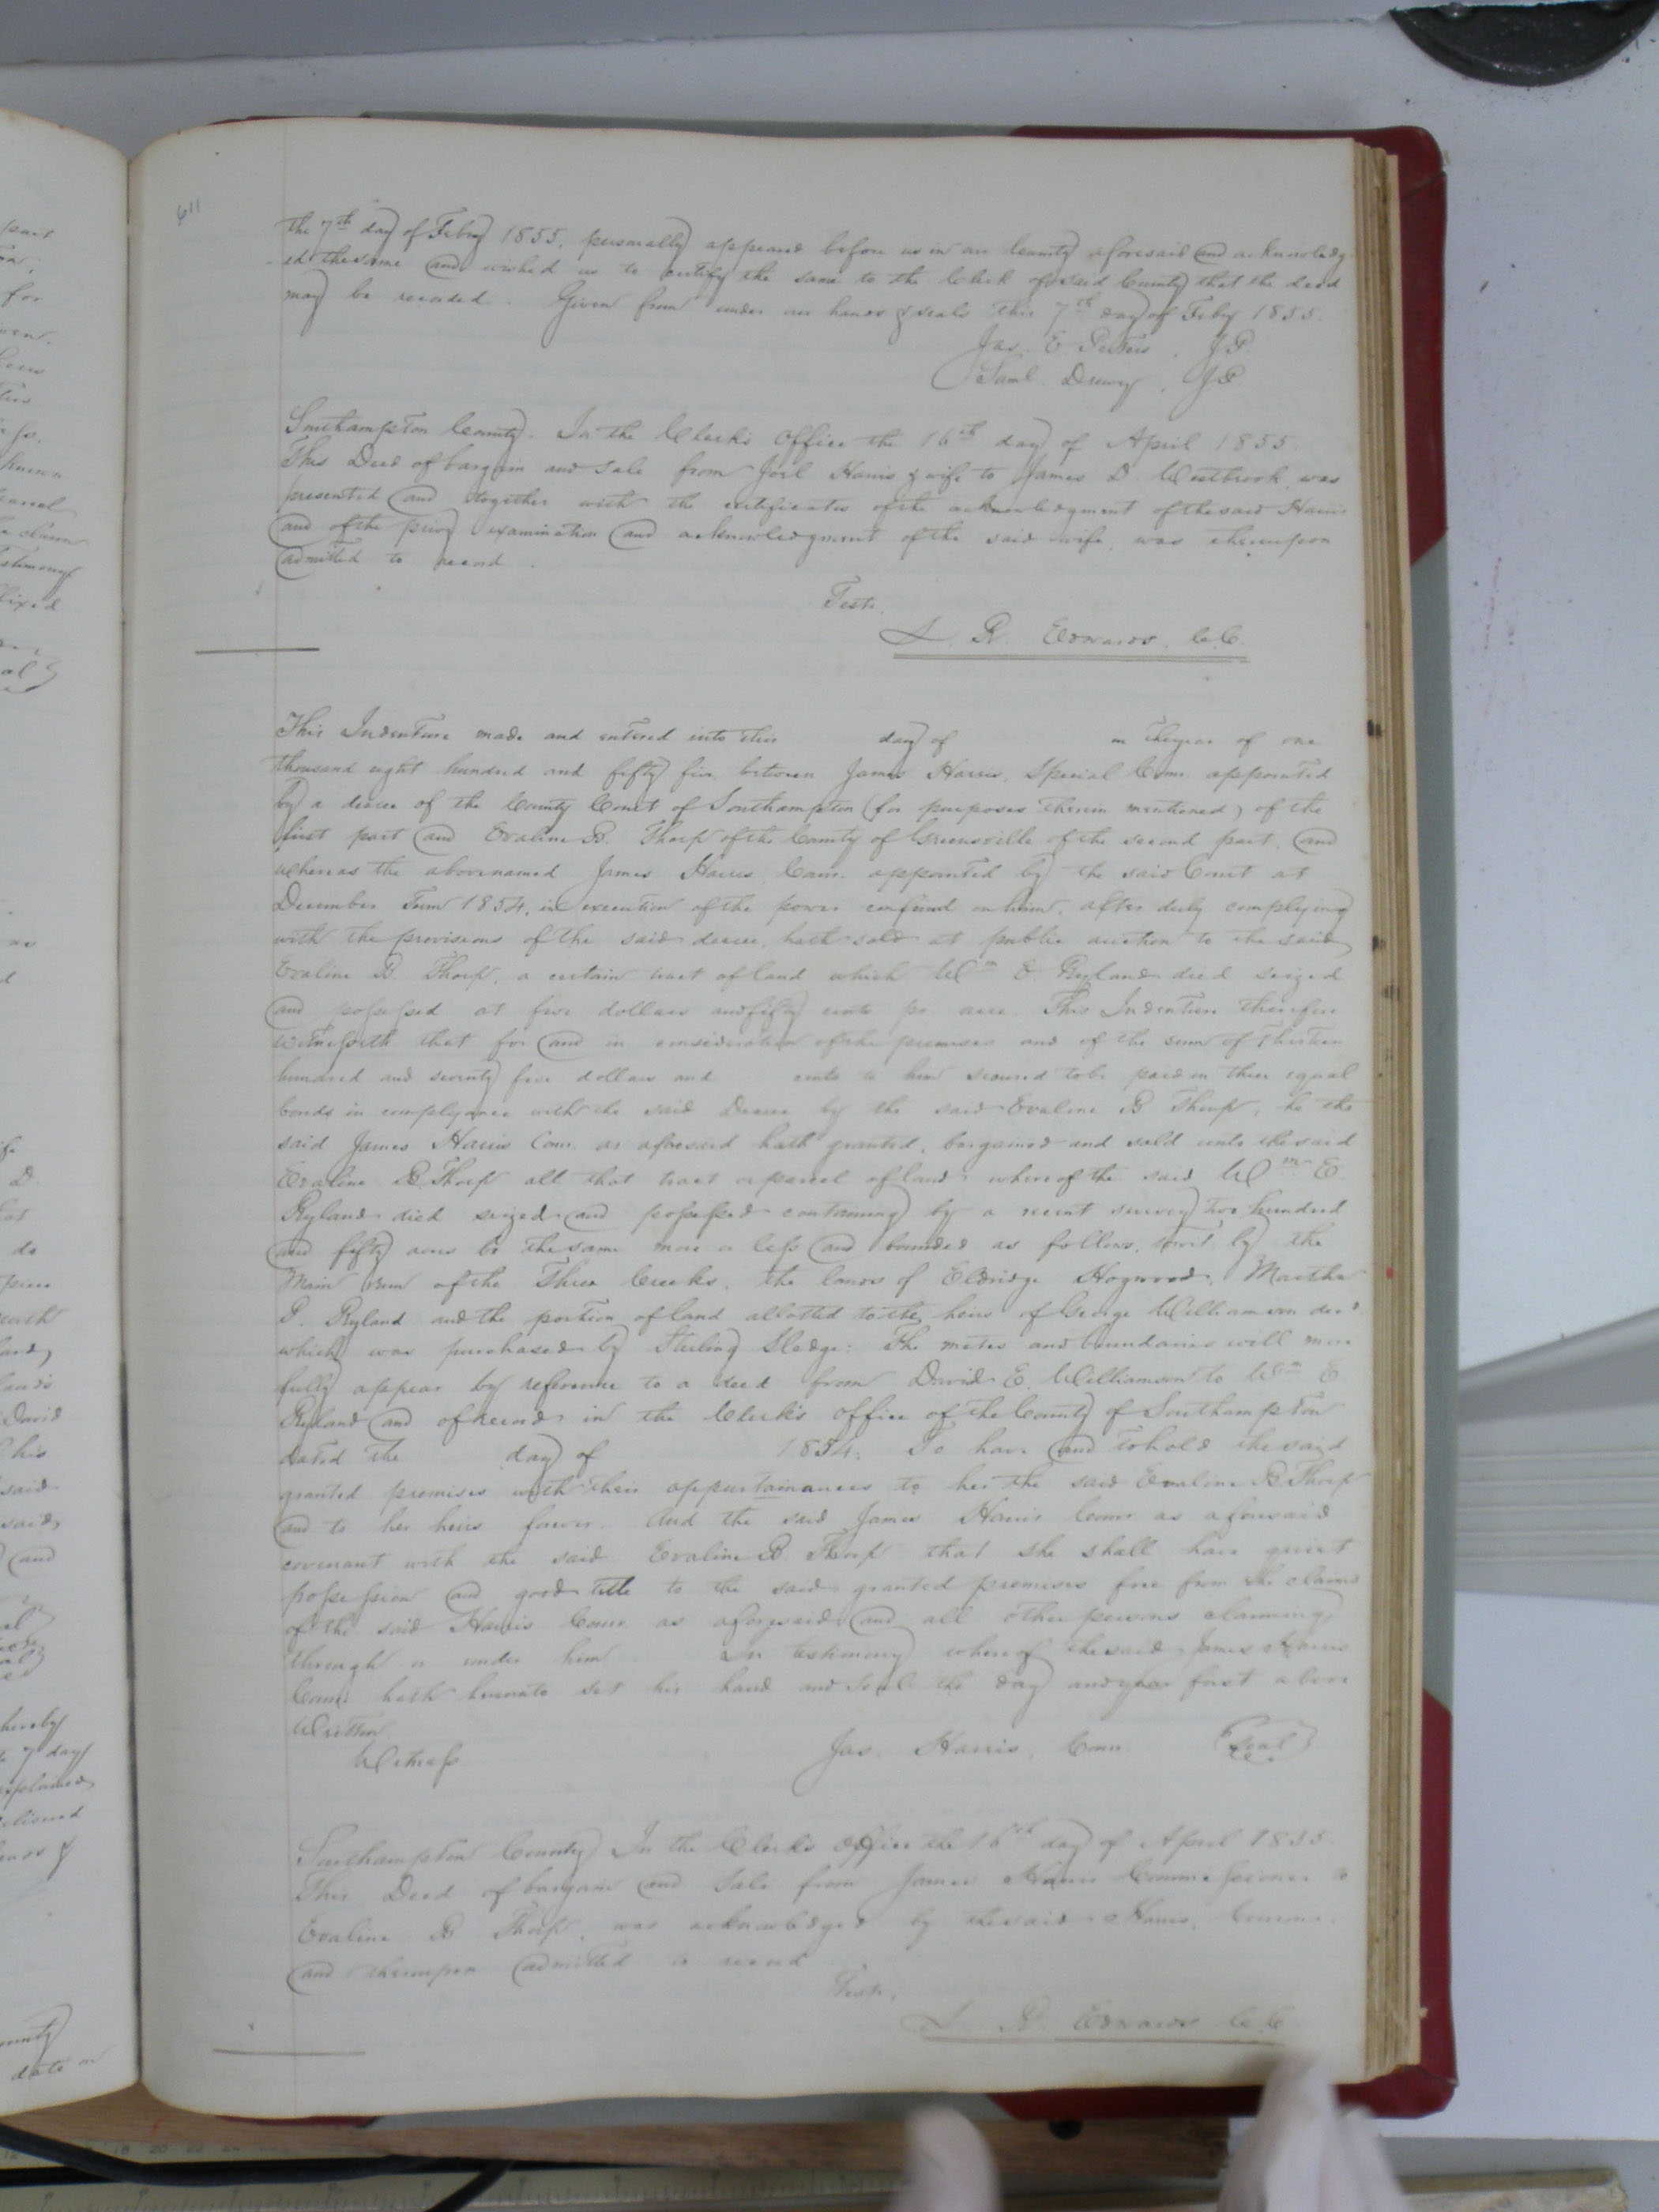 611
the 7th day of Feby 1855, personally appeared before us in our County aforesaid and acknowledg-
ed the same and wished us to certify the same to the Clerk of said County that the deed
may be recorded. Given from under our hands & seals this 7th day of Feby 1855.
Jas. E. Peters, J.P.
Saml. Drewry, J.P.
Southampton County. In the Clerk's Office the 16th day of April 1855.
This Deed of bargain and sale from Joel Harris & wife to James D. Westbrook, was
presented and together with the certificates of the acknowledgment of the said Harris
and of the privy examination and acknowledgment of the said wife, was thereupon
admitted to record.
Teste,
L. R. Edwards. C.C.
This Indenture made and entered into this day of in the year of one
thousand eight hundred and fifty five, between James Harris, Special Comr. appointed
by a decree of the County Court of Southampton (for purposes therein mentioned) of the
first part and Evaline B. Thorp of the County of Greensville of the second part, and
whereas the abovenamed James Harris Comr. appointed by the said Court at
December Term 1854, in execution of the power confered on him, after duly complying
with the provisions of the said decree, hath sold at public auction to the said
Evaline B. Thorp, a certain tract of land which Wm E. Ryland died seized
and possessed at five dollars and fifty cents pr. acre. This Indenture therefore
witnesseth that for and in consideration of the premises and of the sum of Thirteen
hundred and seventy five dollars and cents to him secured to be paid in three equal
bonds in complyance with the said Decree by the said Evaline B Thorp, he the
said James Harris Comr. as aforesaid hath granted, bargained and sold unto the said
Evaline B. Thorp all that tract or parcel of land whereof the said Wm E.
Ryland died seized and possessed containing by a recent survey two hundred
and fifty acres be the same more or less and bounded as follows, towit: by the
Main Run of the Three Creeks, the lands of Eldridge Hogwood, Martha
P. Ryland and the portion of land allotted to the heirs of George Williamson decd
which was purchased by Sterling Sledge: The metes and boundaries will more
fully appear by reference to a deed from David E. Williamson to Wm E.
Ryland and of record in the Clerk's office of the County of Southampton
dated the day of 1854. To have and to hold the said
granted premises with their appurtainances to her the said Evaline B. Thorp
and to her heirs forever. And the said James Harris Comr as aforesaid
covenant with the said Evaline B Thorp that she shall have quiet
possession and good title to the said granted premises free from the claims
of the said Harris Comr. as aforesaid and all other persons claiming
through or under him. In testimony whereof the said James Harris
Comr. hath hereunto set his hand and seal the day and year first above
Written.
Witness
Jas. Harris, Comr. (Seal)
Southampton County. In the Clerk's Office the 16th day of April 1855.
This Deed of bargain and Sale from James Harris Commissioner to
Evaline B Thorp, was acknowledged by the said Harris, Commr.
and thereupon admitted to record
Teste,
L. R. Edwards C.C.